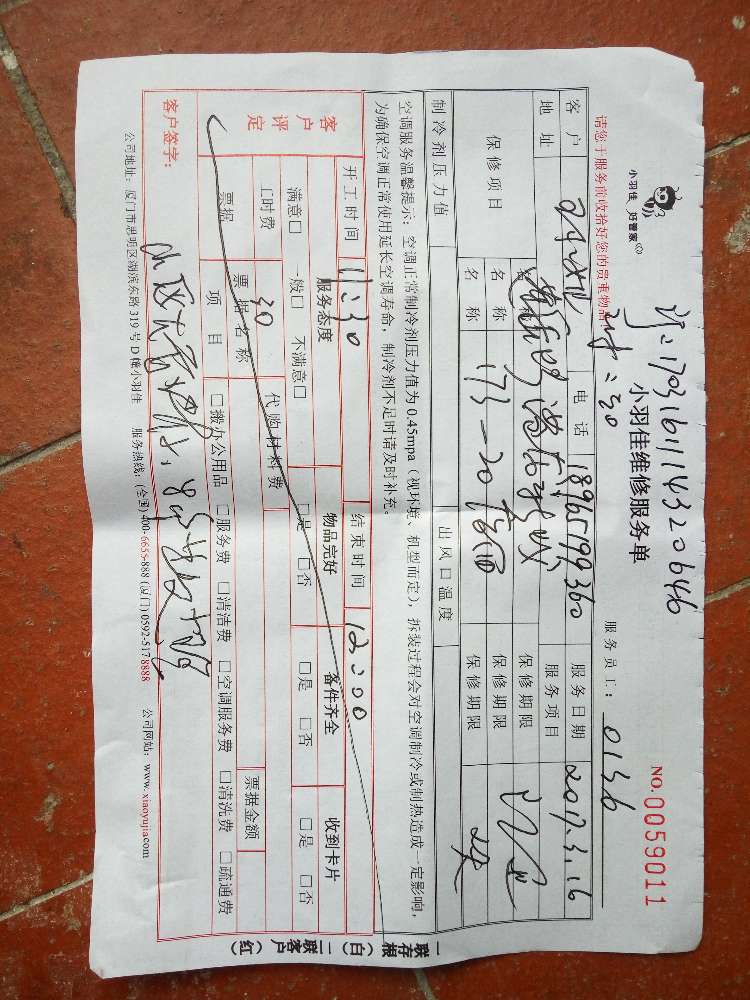 小羽佳 好管家
请您于服务前收拾好您的贵重物品
1703161114320646
30
小羽佳维修服务单
NO.0059011
服务员工: 0136
客户 电话 18965199360 服务日期 2017.3.16
地址 服务项目
保修项目 名称 保修期限
名称 保修期限
名称 173—20 保修期限
制冷剂压力值 出风口温度
空调服务温馨提示: 空调正常制冷剂压力值为0.45mpa (视环境、机型而定), 拆装过程会对空调制冷或制热造成一定影响,
为确保空调正常使用延长空调寿命, 制冷剂不足时请及时补充。
开工时间 11:30 结束时间 12:00
客户评定 服务态度 物品完好 备件齐全 收到卡片
满意□ 一般□ 不满意□ □是 □否 □是 □否 □是 □否
工时费 30 代购材料费
票据 票据名称 票据金额
项目 □搬办公用品 □服务费 □清洁费 □空调服务费 □清洗费 □疏通费
客户签字:
公司地址: 厦门市思明区湖滨东路319号D幢小羽佳 服务热线: (全国)400-6655-888 (厦门)0592-5178888 公司网站: www.xiaoyujia.com
一联存根(白) 二联客户(红)